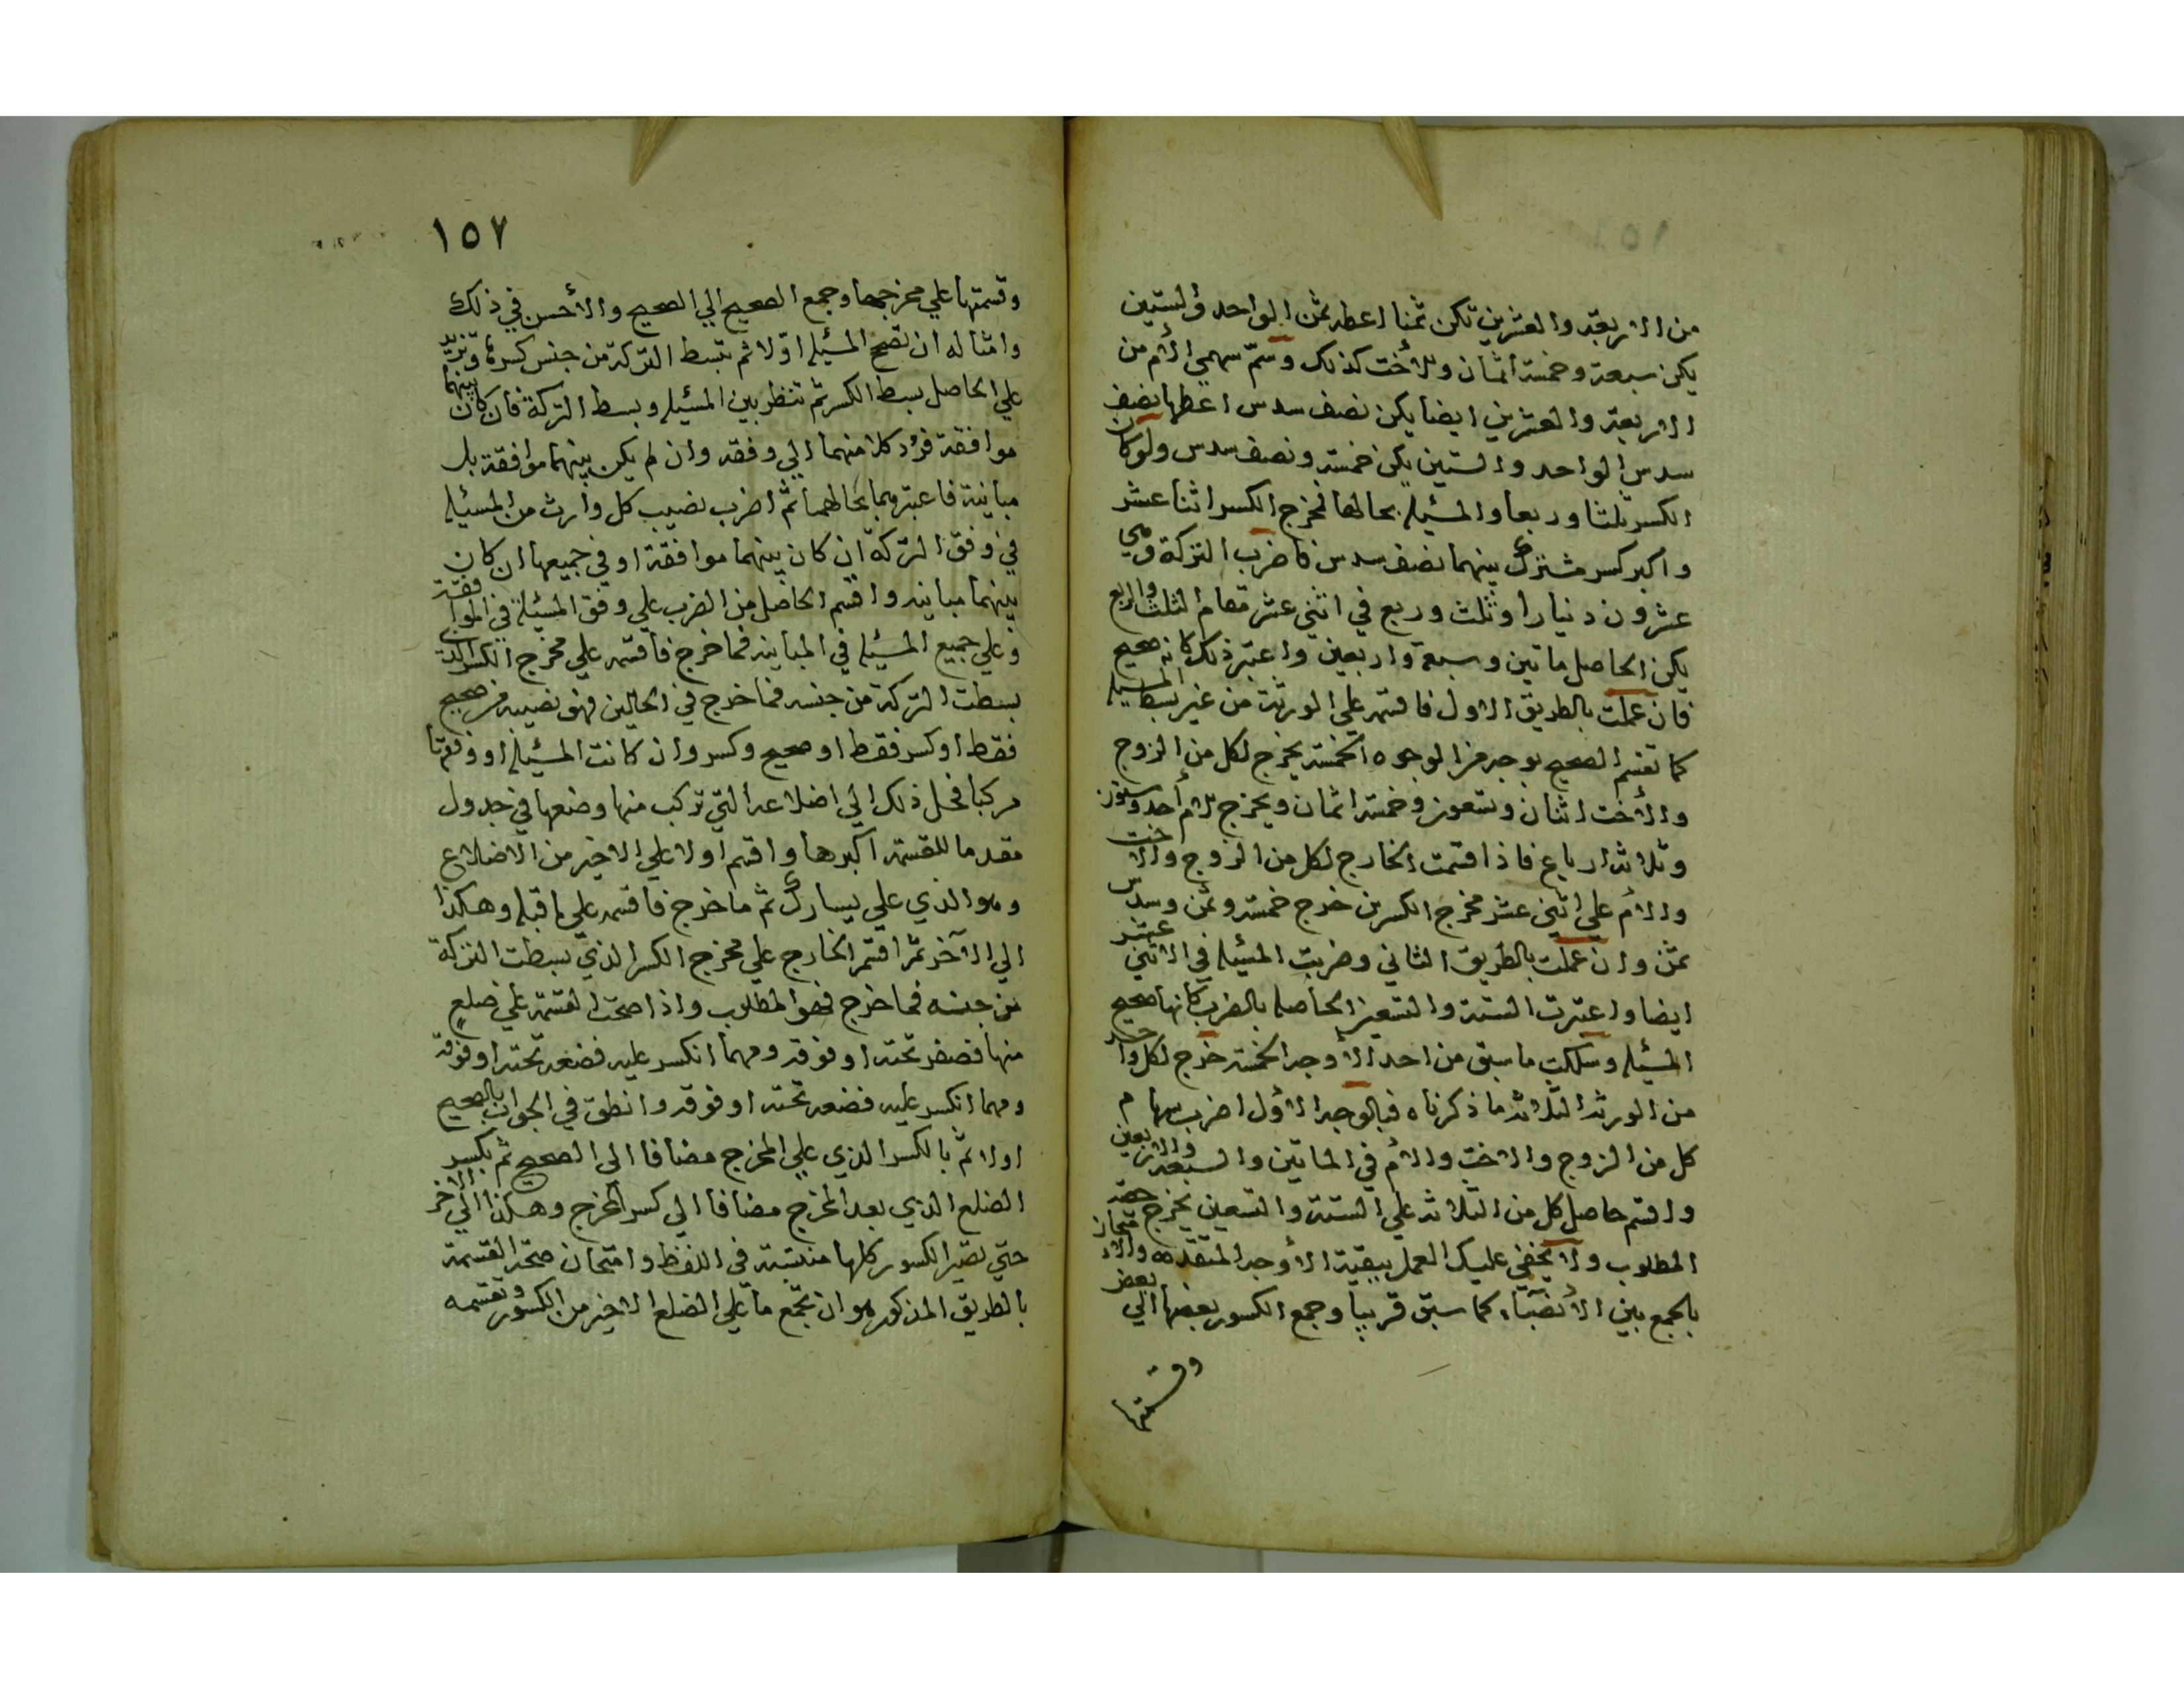 من الاربعة والعشرين تكن ثمنا اعطه ثمن الواحد والستين
يكن سبعة وخمسة اثمان وللأخت كذلك وسمّ سهمي الأم من
الاربعة والعشرين ايضا يكن نصف سدس اعطها نصف
سدس الواحد والستين يكن خمسة ونصف سدس ولو كان
الكسر ثلثا وربعا والمسئلة بحالها فمخرج الكسر اثنا عشر
واكبر كسر مشترك بينهما نصف سدس فاضرب التركة وهي
عشرون دينارا وثلث وربع في اثني عشر مقام الثلث والربع
يكن الحاصل ماتين وسبعة واربعين واعتبر ذلك كانه صحيح
فان عملت بالطريق الاول فاقسمه علي الورثة من غير بسط المسئلة
كما تقسم الصحيح بوجه من الوجوه الخمسة يخرج لكل من الزوج
والأخت اثنان وتسعون وخمسة اثمان ويخرج للأم أحد وستون
وثلاثة ارباع فاذا قسمت الخارج لكل من الزوج والاخت
والام علي اثني عشر مخرج الكسرين خرج خمسة وثمن وسدس
ثمن وان عملت بالطريق الثاني وضربت المسئلة في الاثني عشر
ايضا واعتبرت الستة والتسعين الحاصلة بالضرب كانها صحيح
المسئلة وسلكت ما سبق من احد الأوجه الخمسة خرج لكل واحد
من الورثة الثلاثة ما ذكرناه فبالوجه الاول اضرب سهام
كل من الزوج والاخت والام في الماتين والسبعة والاربعين
واقسم حاصل كل من الثلاثة علي الستة والتسعين يخرج حقه
المطلوب ولا يخفي عليك العمل ببقية الأوجه المتقدمه والامتحان
بالجمع بين الأنصباء كما سبق قريبا وجمع الكسور بعضها الي بعض
وقسمتها
١٥٧
وقسمتها علي مخرجها وجمع الصحيح الي الصحيح والأحسن في ذلك
وامثاله ان تصح المسئلة اوّلا ثم تبسط التركة من جنس كسرها وتزيد
علي الحاصل بسط الكسر ثم تنظر بين المسئلة وبسط التركة فان كان بينهما
موافقة فرُد كلا منهما الي وفقه وان لم يكن بينهما موافقة بل
مباينة فاعتبرهما بحالهما ثم اضرب نصيب كل وارث من المسئلة
في وفق التركة ان كان بينهما موافقة او في جميعها ان كان
بينهما مباينه واقسم الحاصل من الضرب علي وفق المسئلة في الموافقة
وعلي جميع المسئلة في المباينه فما خرج فاقسمه علي مخرج الكسر الذي
بسطت التركة من جنسه فما خرج في الحالين فهو نصيبه من صحيح
فقط او كسر فقط او صحيح وكسر وان كانت المسئلة او وفقها
مركبا فحل ذلك الي اضلاعه التي تركب منها وضعها في جدول
مقدما للقسمة اكبرها واقسم اولا علي الاخير من الاضلاع
وهو الذي علي يسارك ثم ما خرج فاقسمه علي ما قبله وهكذا
الي الآخر ثم اقسم الخارج علي مخرج الكسر الذي بسطت التركة
من جنسه فما خرج فهو المطلوب واذا صحت القسمة علي ضلع
منها فصفر تحته او فوقه ومهما انكسر عليه فضعه تحته او فوقه
ومهما انكسر عليه فضعه تحته او فوقه وانطق في الجواب بالصحيح
اولا ثم بالكسر الذي علي المخرج مضافا الي الصحيح ثم بكسر
الضلع الذي بعد المخرج مضافا الي كسر المخرج وهكذا الي الاخر
حتي تصير الكسور كلها منتسبة في اللفظ وامتحان صحة القسمة
بالطريق المذكور هو ان تجمع ما علي الضلع الاخير من الكسور وتقسمه